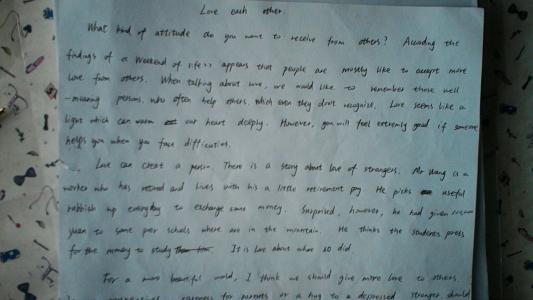 Love each other.
What kind of attitude do you want to receive from others? According the
findings of a Weekend of life>> appears that people are mostly like to accept more
love from others. When talking about love, we would like to remember those well
-meaning persons who often help others, which even they don't recognize. Love seems like a
light which can warm our heart deeply. However, you will feel extremly good if someone
helps you when you face difficulties.
Love can cheat a person. There is a story about love of strangers. Mr Wang is a
worker who has retired and lives with his a little retirement pay. He picks useful
rubbish up everyday to exchange some money. Surprised, however, he had given
yuan to some poor schools where are in the mountain. He thinks the students
for the money to study It is love about what do did.
For a more beautiful world, I think we should give more love to others.
for parents or a hug to a depressed stranger should